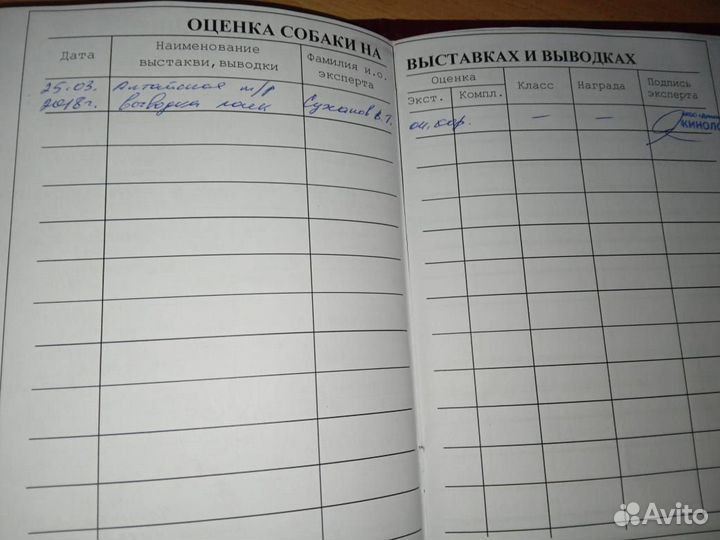 ОЦЕНКА СОБАКИ НА
Дата
Наименование
выстакви, выводки
Фамилия и.о.
эксперта
25.03.
2018г.
Алтайская м/р
выводка лаек
Суханов В.Г.
ВЫСТАВКАХ И ВЫВОДКАХ
Оценка
Экст.
Компл.
Класс
Награда
Подпись
эксперта
оч. хор.
—
—
КИНОЛО
Avito